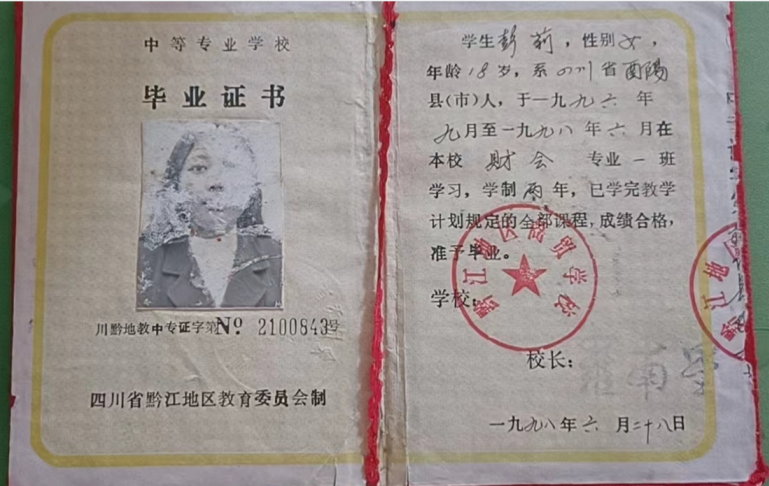 中等专业学校
毕业证书
川黔地教中专证字第№ 2100843号
四川省黔江地区教育委员会制
学生彭莉，性别女，
年龄18岁，系四川省酉陽
县(市)人，于一九九六年
九月至一九九八年六月在
本校财会专业一班
学习，学制两年，已学完教学
计划规定的全部课程，成绩合格，
准予毕业。
学校：
黔江地区商贸学校
校长：
一九九八年六月二十八日
黔江地